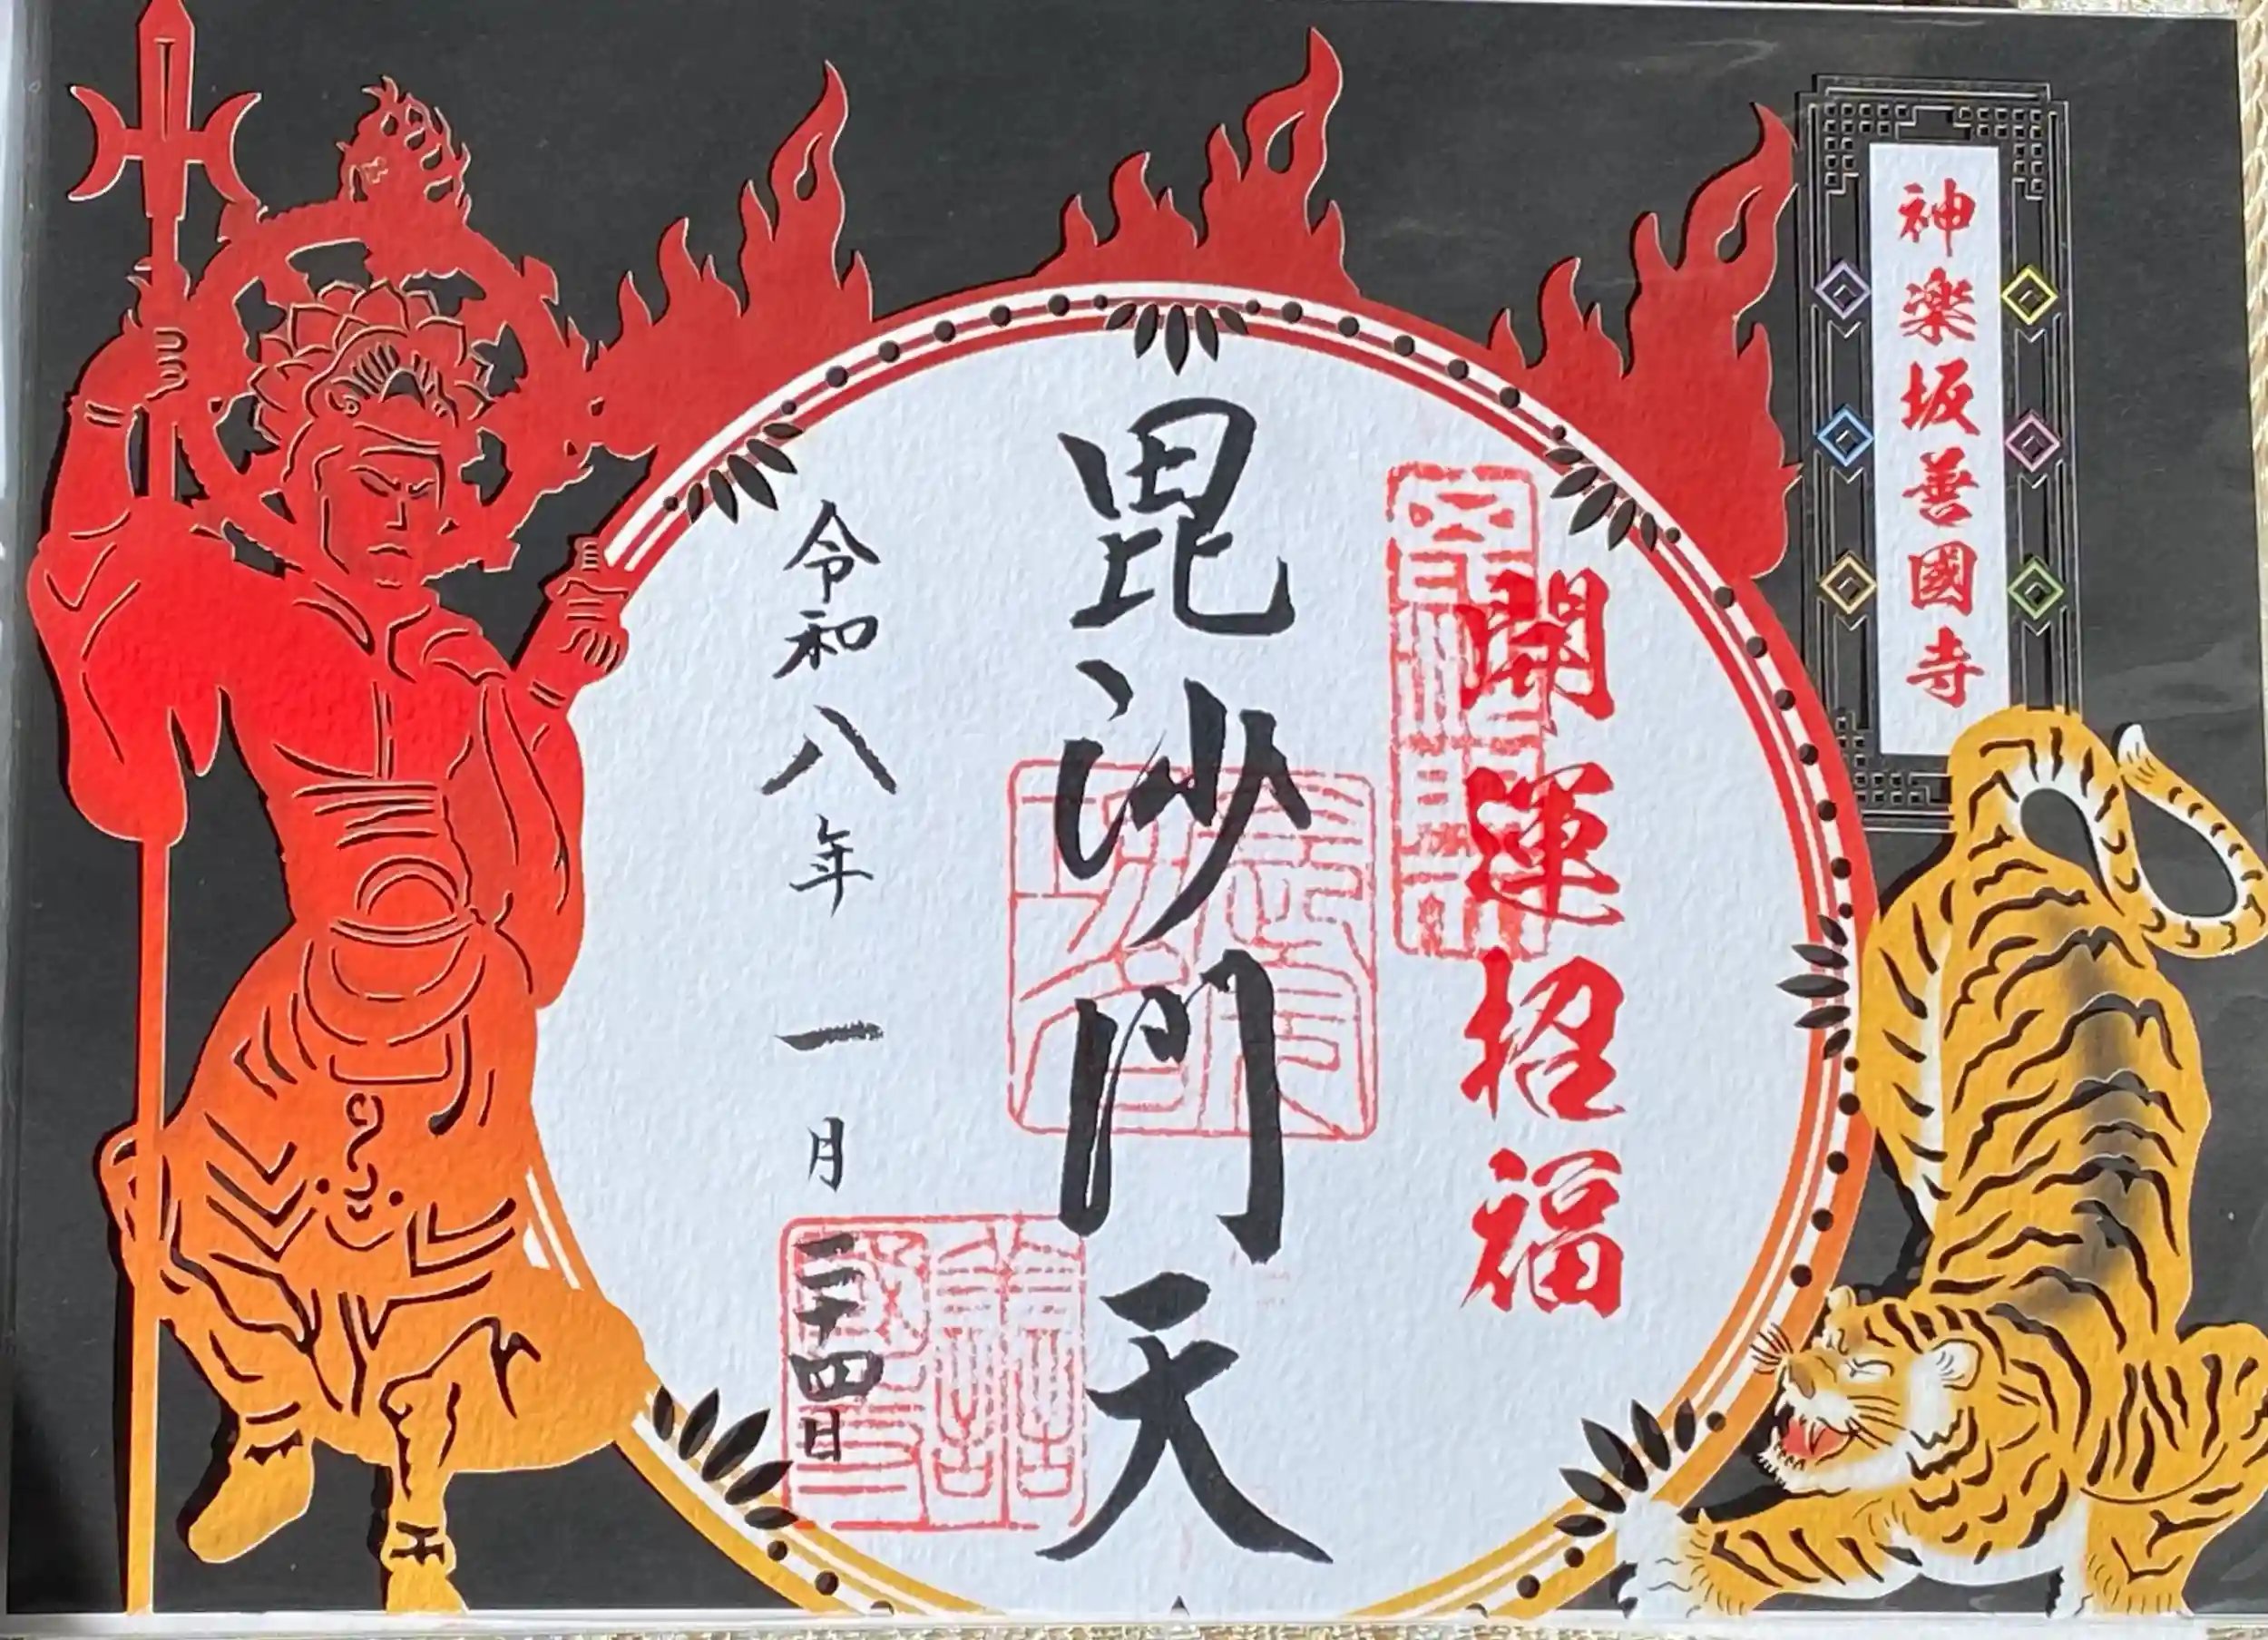 神楽坂善國寺
開運招福
毘沙門天
令和八年一月二十四日